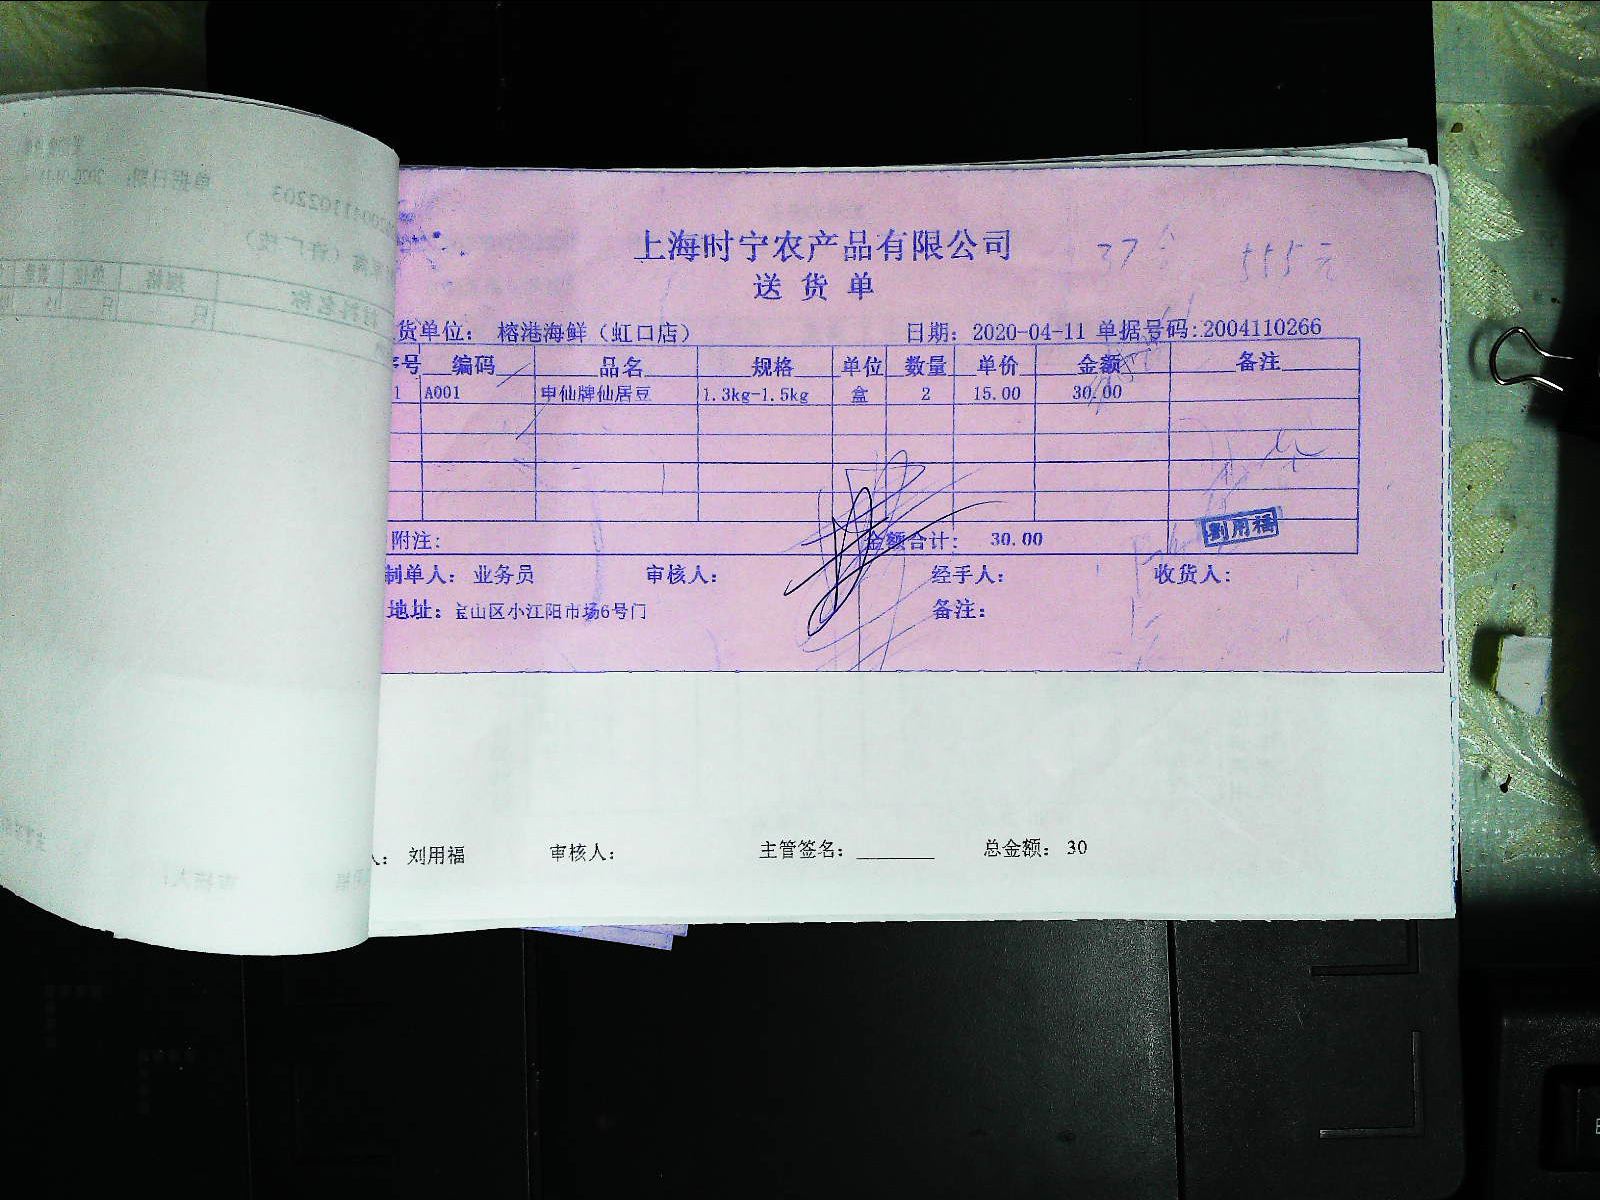 上海时宁农产品有限公司
37 555元
送货单
货单位： 榕港海鲜（虹口店） 日期：2020-04-11 单据号码:2004110266
序号 编码 品名 规格 单位 数量 单价 金额 备注
1 A001 申仙牌仙居豆 1.3kg-1.5kg 盒 2 15.00 30.00
附注： 金额合计： 30.00
刘用福
制单人：业务员 审核人： 经手人： 收货人：
地址：宝山区小江阳市场6号门 备注：
人：刘用福 审核人： 主管签名： 总金额：30